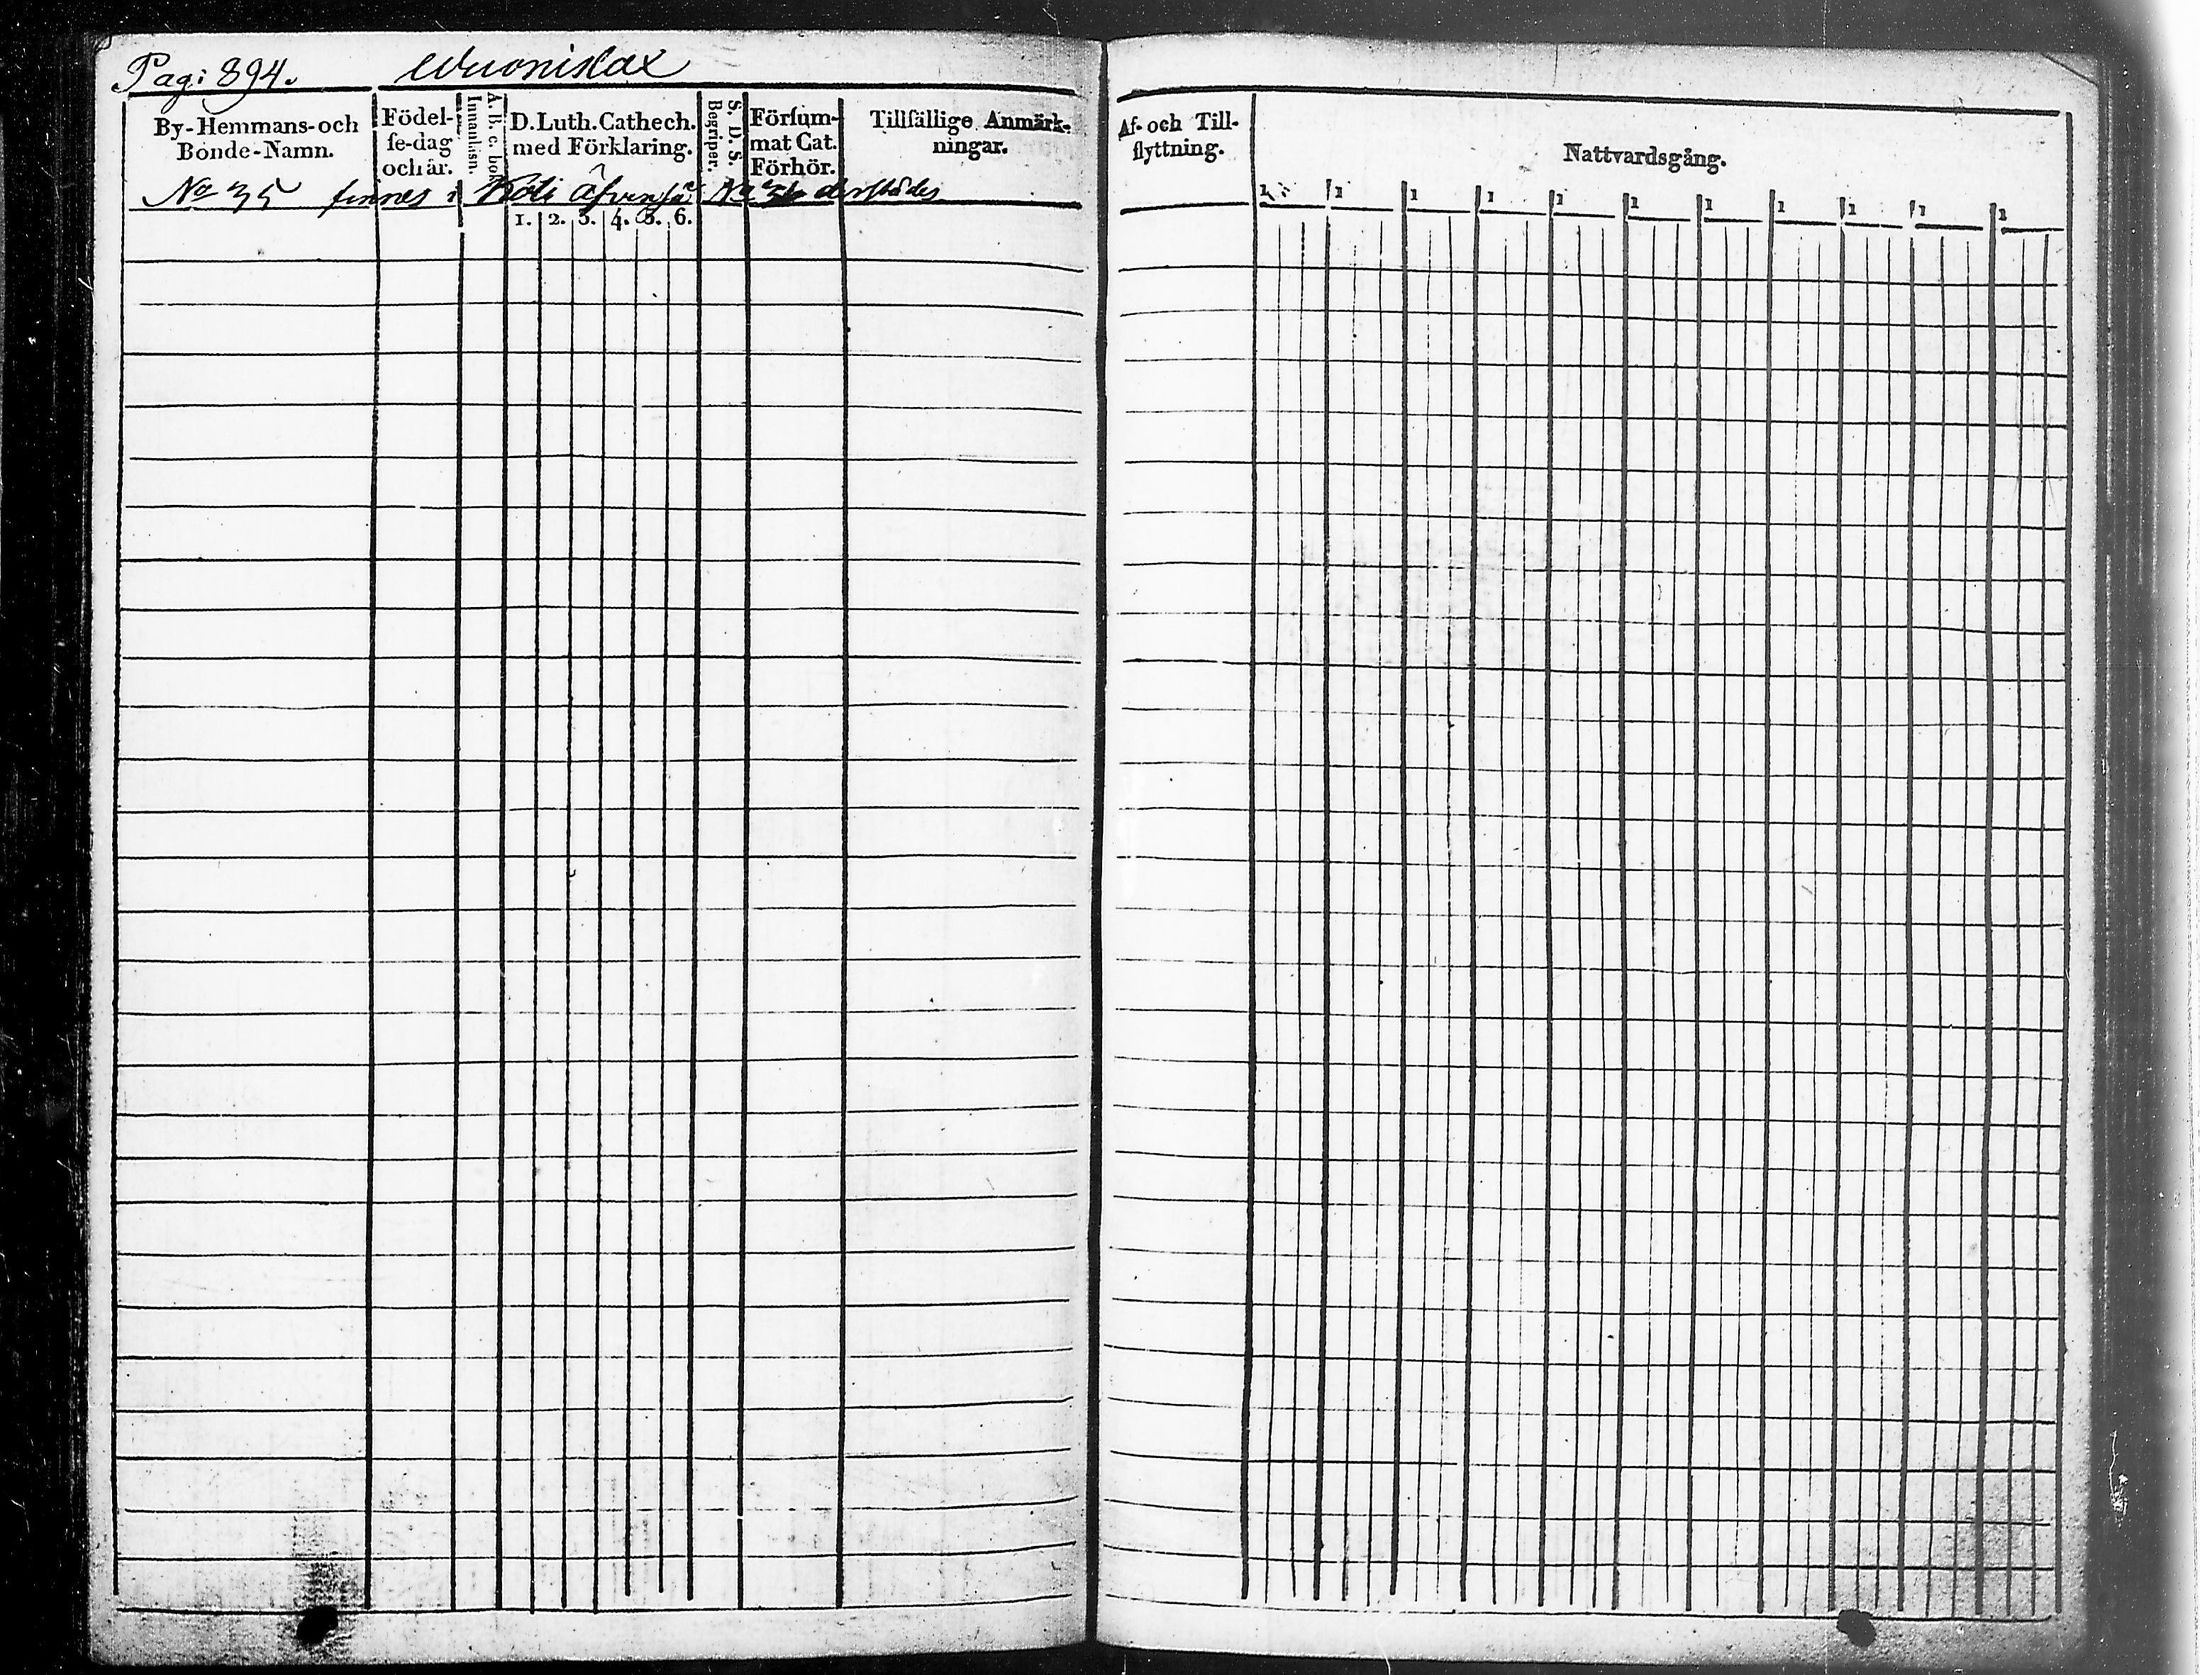 Pag: 894. Wuonislax
By-Hemmans-och
Bonde-Namn.
Födel-
se-dag
och år.
Innanläsn.
A. B. c. bok
D. Luth. Cathech.
med Förklaring.
Begriper.
S. D. S.
Försum-
mat Cat.
Förhör.
Tillfällige Anmärk-
ningar.
Af- och Till-
flyttning.
Nattvardsgång.
No 35 finnes i Koli No 36 derstädes
1. 2. 3. 4. 5. 6.
1 1 1 1 1 1 1 1 1 1 1